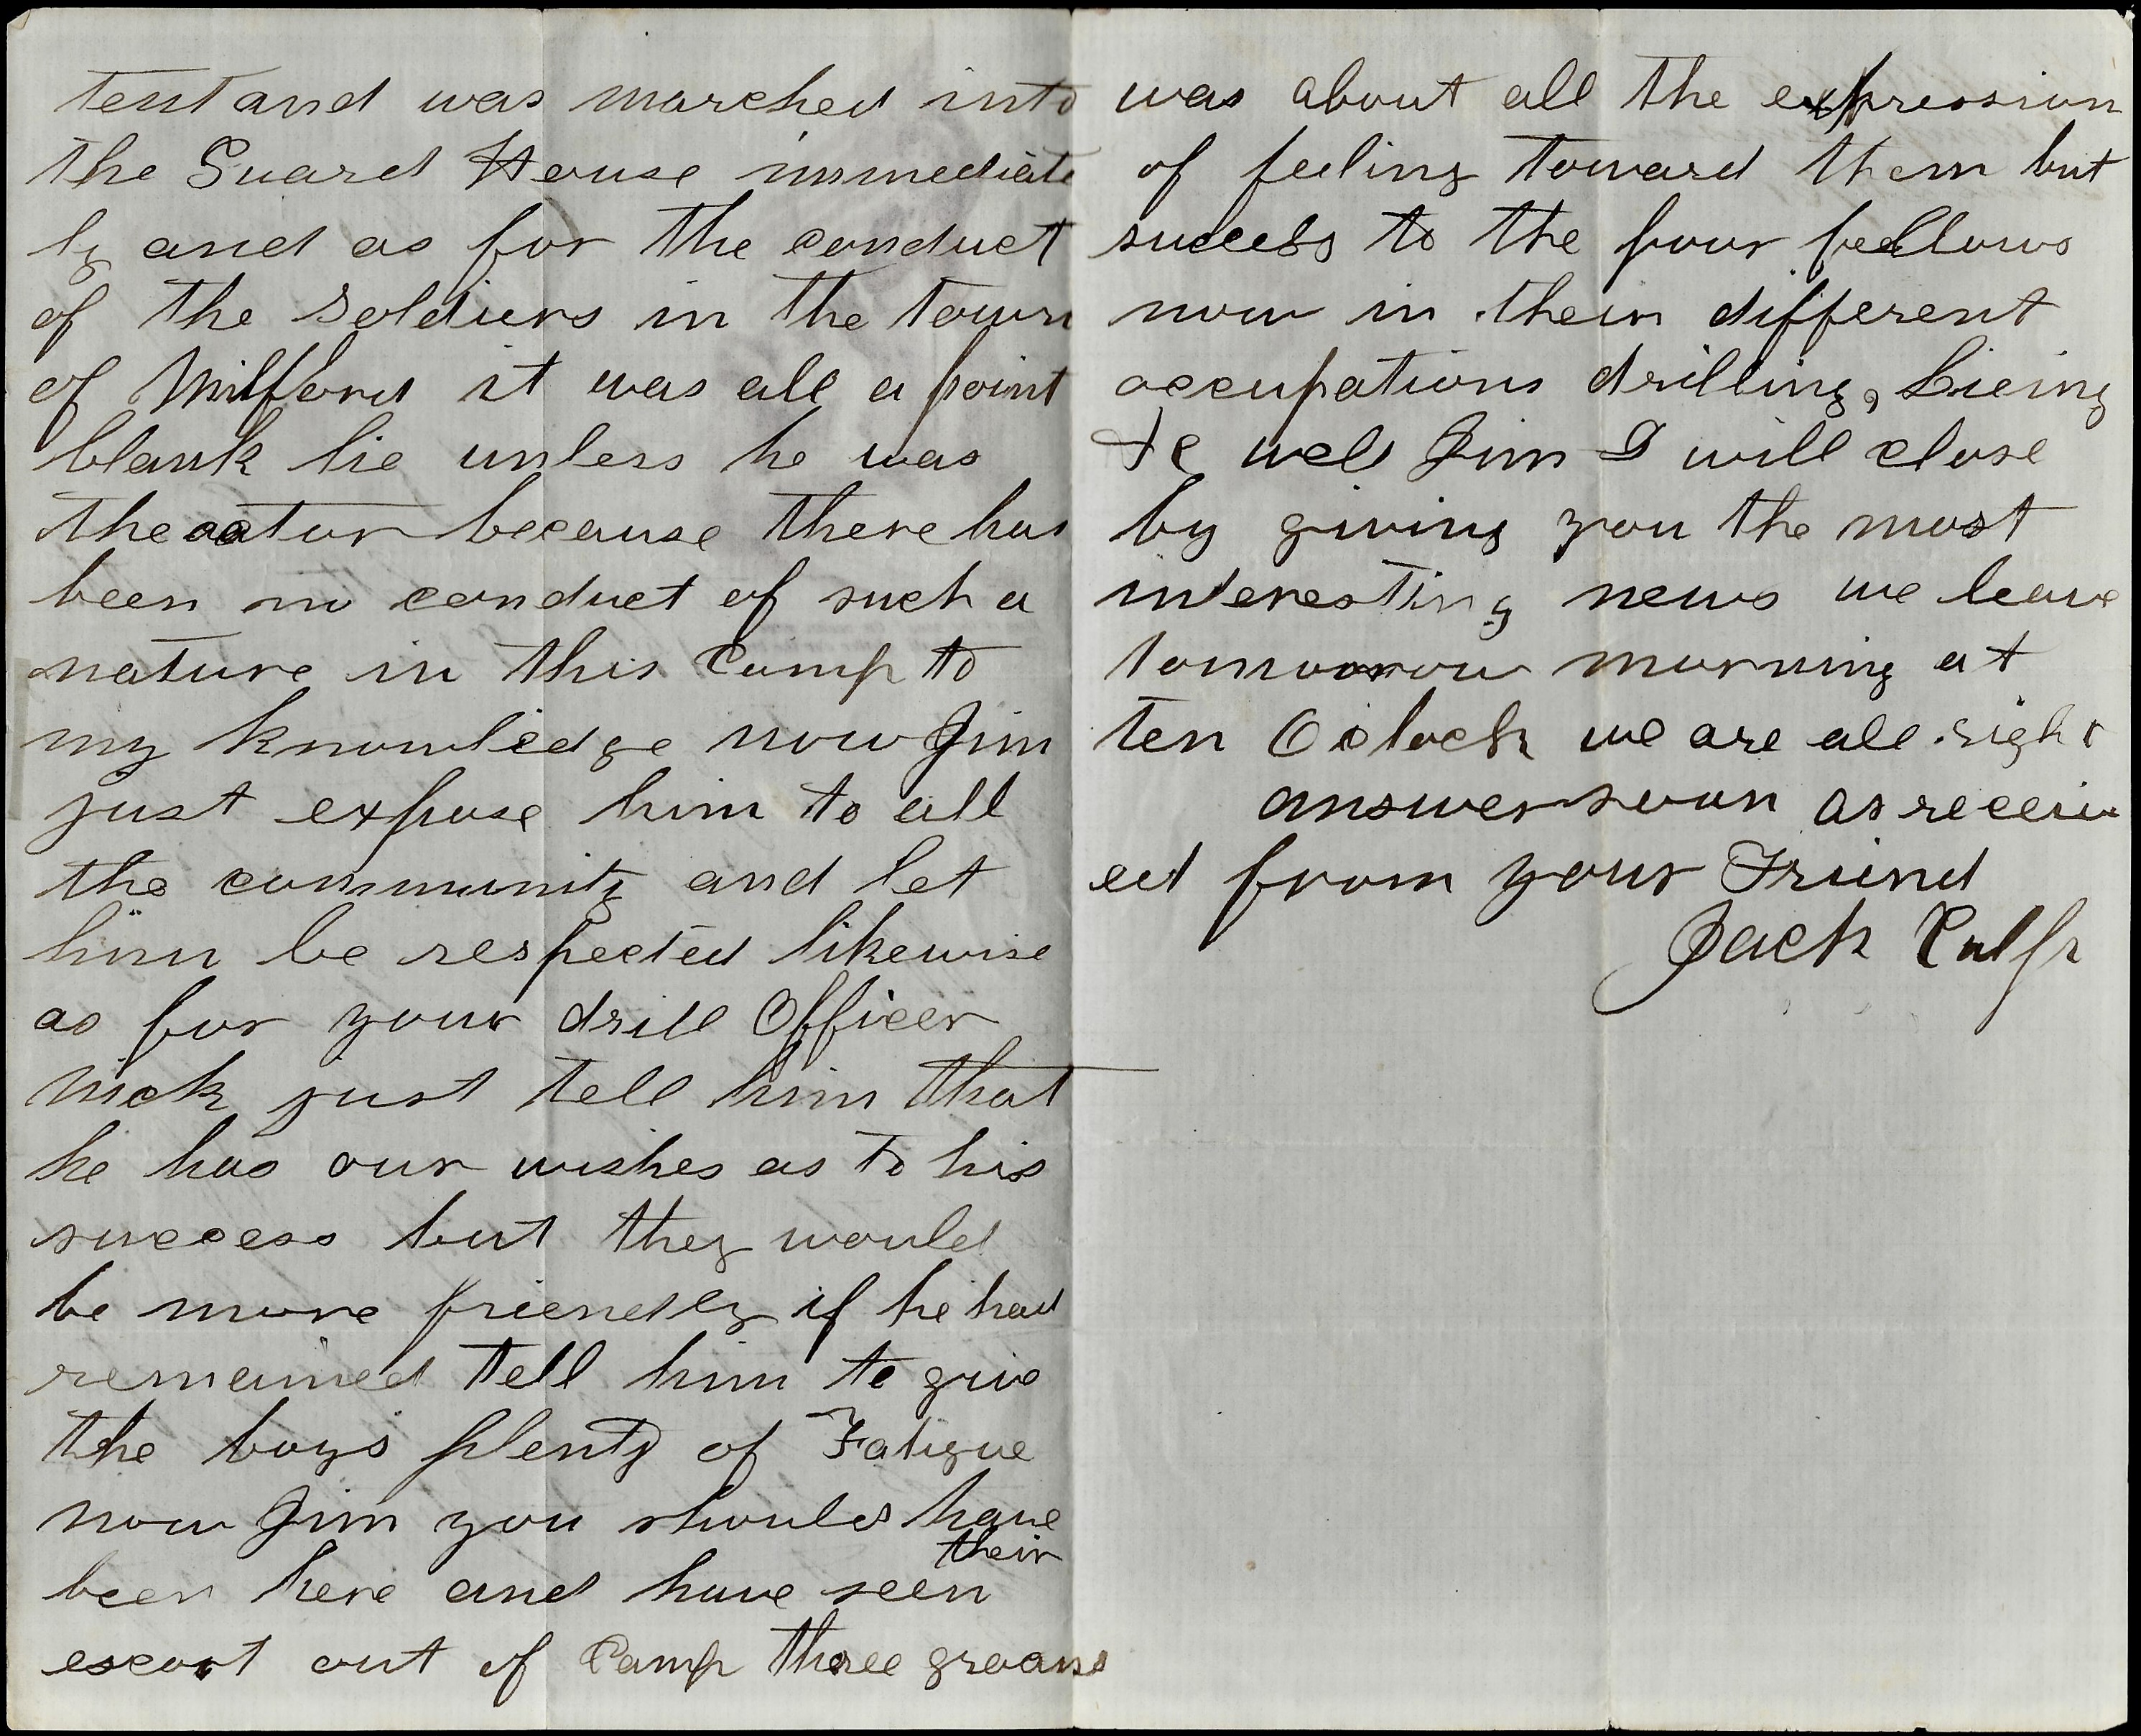 tent and was marched into
the Guard House immediate
ly and as for the conduct
of the Soldiers in the town
of Milford it was all a point
blank lie unless he was
the actor because there has
been no conduct of such a
nature in this Camp to
my knowledge now Jim
just expose him to all
the community and let
him be respected likewise
as for your drill Officer
Nick just tell him that
he has our wishes as to his
success but they would
be more friendly if he had
remained tell him to give
the boys plenty of Fatigue
now Jim you should have
their
been here and have seen
escort out of Camp three groans
was about all the expression
of feeling toward them but
success to the four fellows
now in their different
occupations drilling, lieing
&c well Jim I will close
by giving you the most
interesting news we leave
tomorrow morning at
ten Oclock we are all right
answer soon as receiv
ed from your Friend
Jack